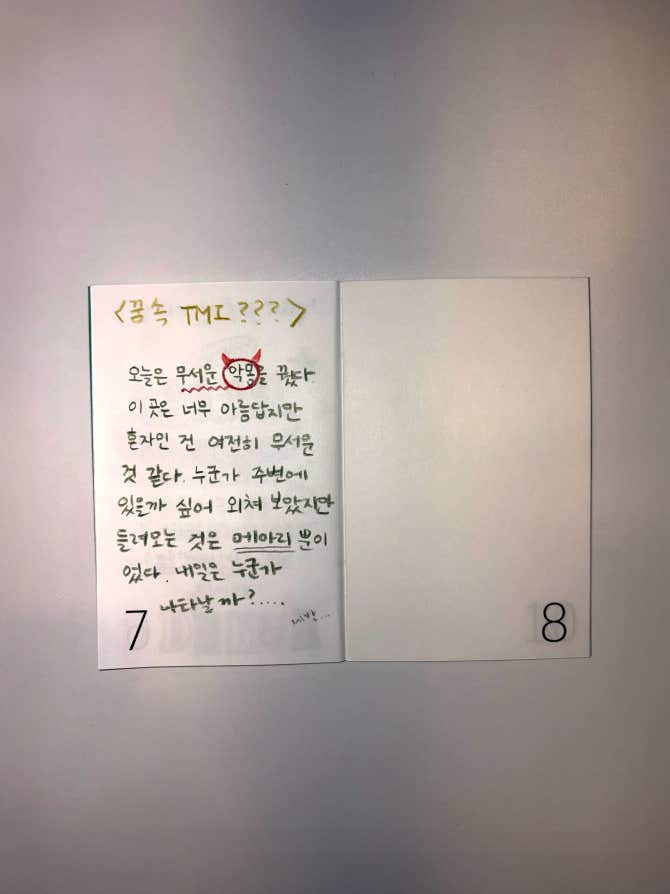 <꿈속 TMI???>
오늘은 무서운 악몽을 꿨다
이 곳은 너무 아름답지만
혼자인 건 여전히 무서운
것 같다. 누군가 주변에
있을까 싶어 외쳐 보았지만
들려오는 것은 메아리 뿐이
었다. 내일은 누군가
나타날까?....
제발...
7
8